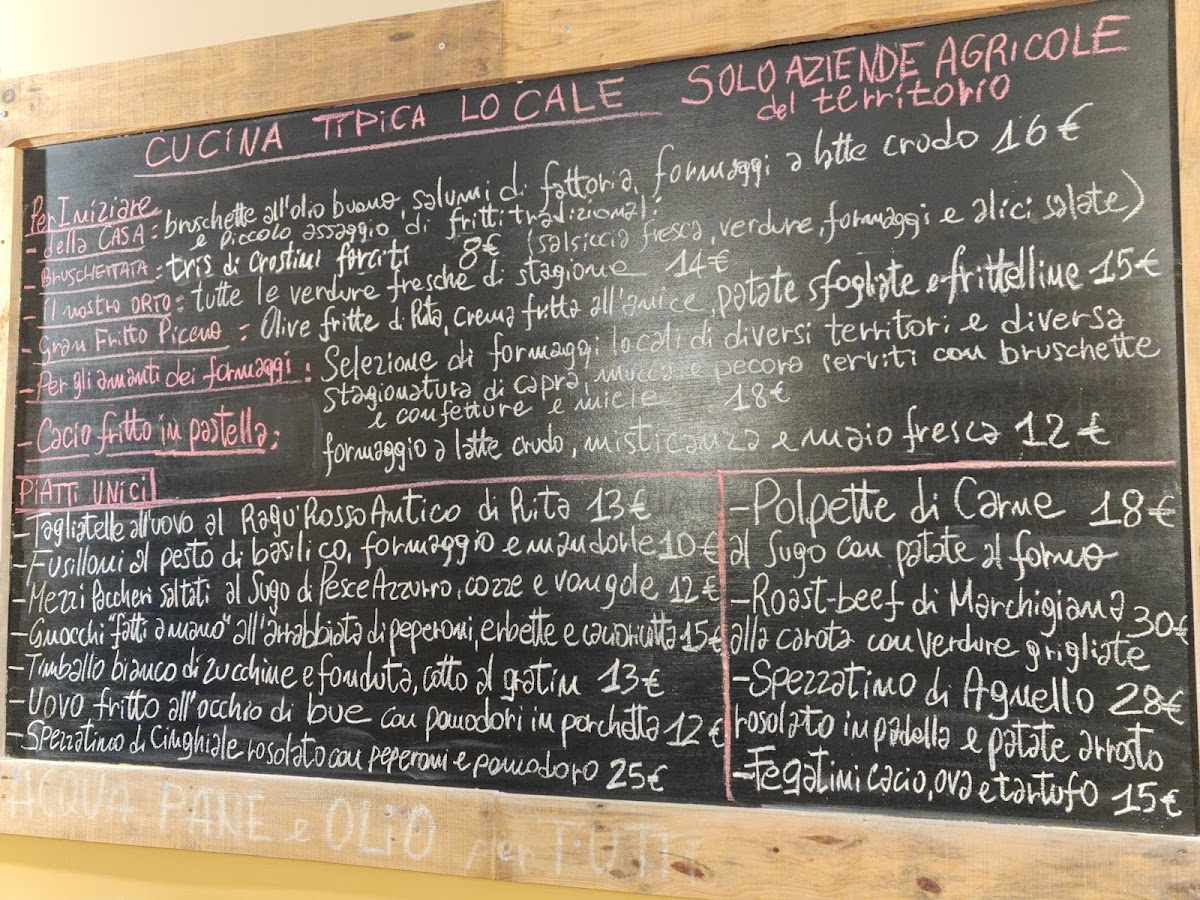 CUCINA TIPICA LOCALE SOLO AZIENDE AGRICOLE
del territorio
Per Iniziare
- della CASA: bruschette all'olio buono, salumi di fattoria, formaggi a latte crudo 16€
e piccolo assaggio di fritti tradizionali
- BRUSCHETTATA: tris di crostini farciti 8€ (salsiccia fresca, verdure, formaggi e alici salate)
- Il nostro ORTO: tutte le verdure fresche di stagione 14€
- Gran Fritto Piceno: Olive fritte di Rita, crema fritta all'anice, patate sfogliate e frittelline 15€
- Per gli amanti dei formaggi: Selezione di formaggi locali di diversi territori e diversa
stagionatura di capra, mucca e pecora serviti con bruschette
e confetture e miele 18€
- Cacio fritto in pastella: formaggio a latte crudo, misticanza e maio fresca 12€
PIATTI UNICI
- Tagliatelle all'uovo al Ragu' Rosso Antico di Rita 13€
- Fusilloni al pesto di basilico, formaggio e mandorle 10€
- Mezzi Paccheri saltati al Sugo di Pesce Azzurro, cozze e vongole 12€
- Gnocchi "fatti a mano" all'arrabbiata di peperoni, erbette e cacioricotta 15€
- Timballo bianco di zucchine e fonduta, cotto al gratin 13€
- Uovo fritto all'occhio di bue con pomodori in porchetta 12€
- Spezzatino di Cinghiale rosolato con peperoni e pomodoro 25€
- Polpette di Carne 18€
al sugo con patate al forno
- Roast-beef di Marchigiana 30€
alla carota con verdure grigliate
- Spezzatino di Agnello 28€
rosolato in padella e patate arrosto
- Fegatini cacio, ova e tartufo 15€
ACQUA PANE e OLIO per TUTTI